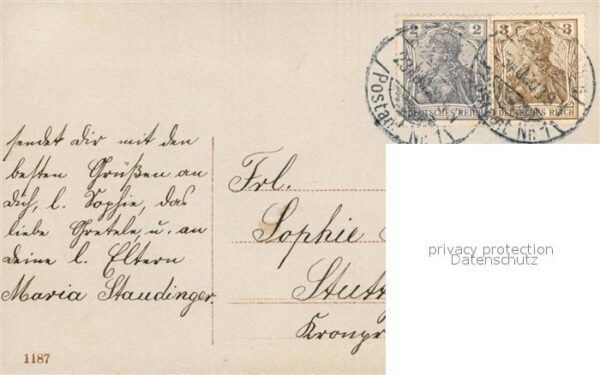 2
3
DEUTSCHES REICH
DEUTSCHES REICH
Postamt Nr. 11
Nr. 11
sendet Dir mit den
besten Grüßen an
Dich, l. Sophie, das
liebe Gretele, u. an
Deine l. Eltern
Maria Staudinger.
Frl.
Sophie
Stutt
Kronpr
1187
privacy protection
Datenschutz